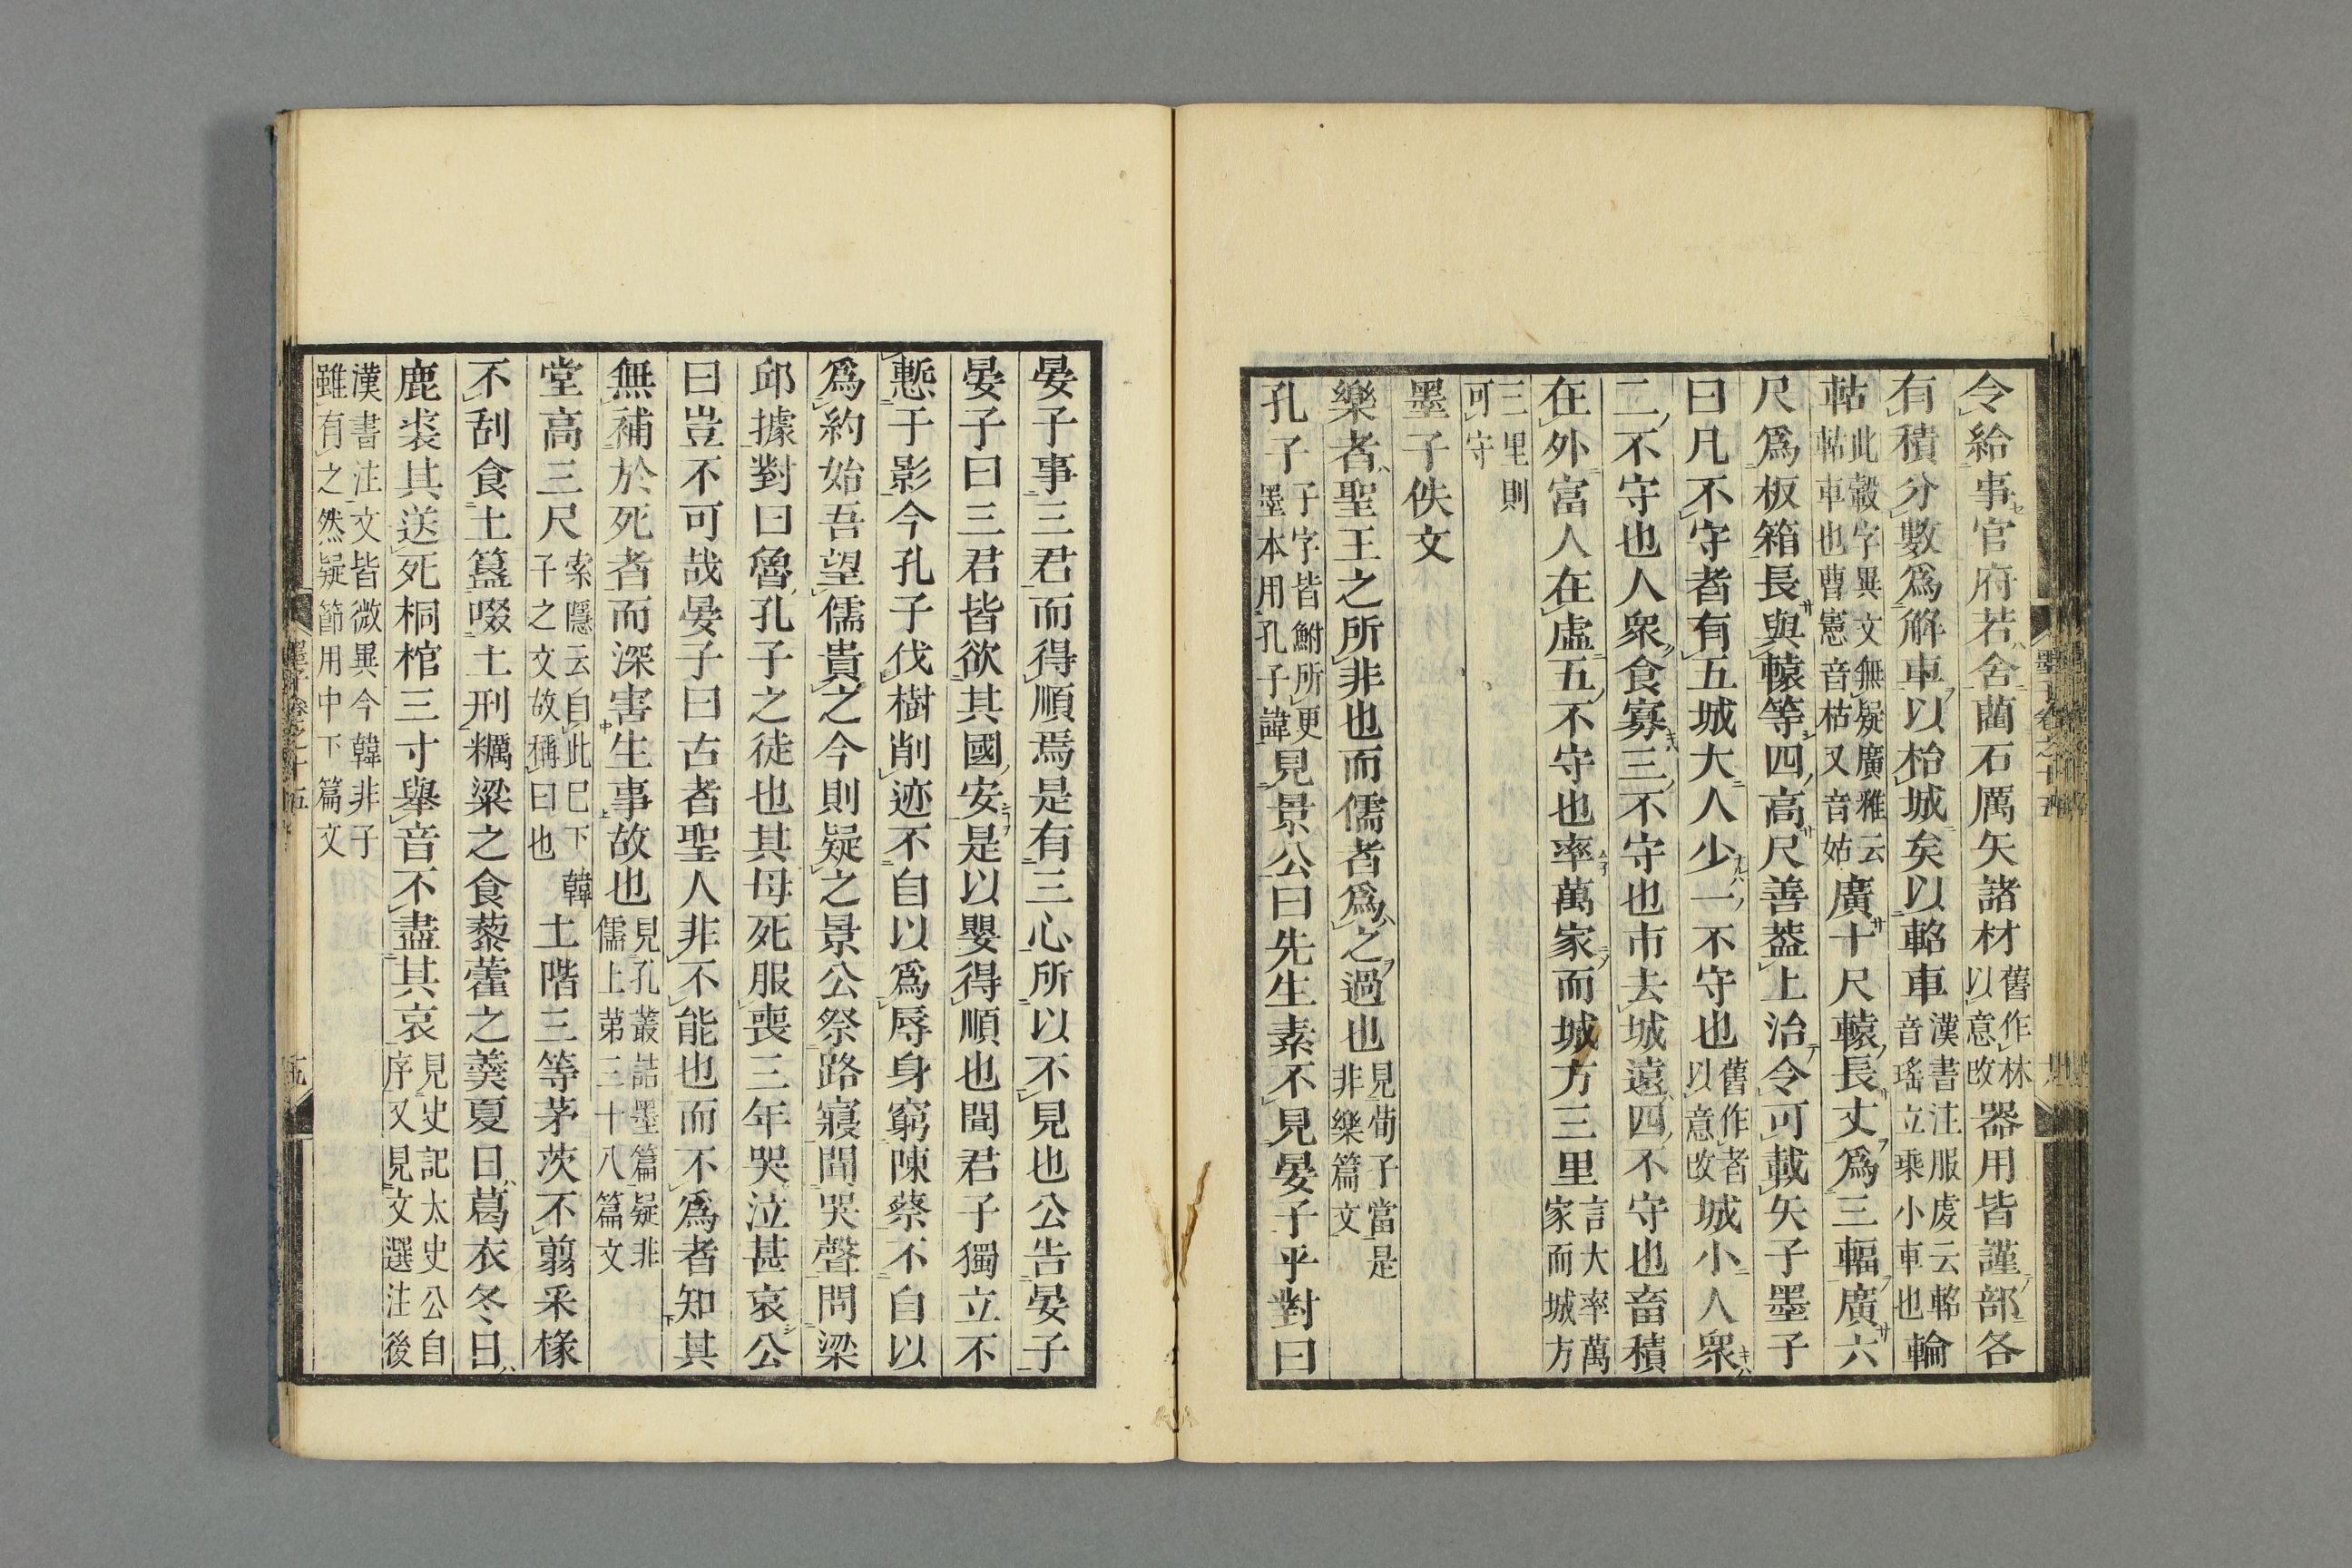 令給事官府若舍藺石厲矢諸材舊作林以意改器用皆謹部各
有積分數爲解車以枱城矣以軺車漢書注服虔云軺音瑤立乘小車也輪
軲此轂字異文無疑廣雅云軲車也曹憲音枯又音姑廣十尺轅長丈爲三輻廣六
尺爲板箱長與轅等四高尺善葢上治令可載矢子墨子
曰凡不守者有五城大人少一不守也舊作者以意改城小人衆
二不守也人衆食寡三不守也市去城遠四不守也畜積
在外富人在虛五不守也率萬家而城方三里言大率萬家而城方
三里則可守
墨子佚文
樂者聖王之所非也而儒者爲之過也見荀子當是非樂篇文
孔子子字皆鮒所更墨本用孔子諱見景公曰先生素不見晏子乎對曰
晏子事三君而得順焉是有三心所以不見也公告晏子
晏子曰三君皆欲其國安是以嬰得順也聞君子獨立不
慙于影今孔子伐樹削迹不自以爲辱身窮陳蔡不自以
爲約始吾望儒貴之今則疑之景公祭路寢聞哭聲問梁
邱據對曰魯孔子之徒也其母死服喪三年哭泣甚哀公
曰豈不可哉晏子曰古者聖人非不能也而不爲者知其
無補於死者而深害生事故也見孔叢詰墨篇疑非儒上第三十八篇文
堂高三尺索隱云自此已下韓子之文故稱曰也土階三等茅茨不翦采椽
不刮食土簋啜土刑糲粱之食藜藿之羹夏日葛衣冬日
鹿裘其送死桐棺三寸舉音不盡其哀見史記太史公自序又見文選注後
漢書注文皆微異今韓非子雖有之然疑節用中下篇文
墨子卷之十五